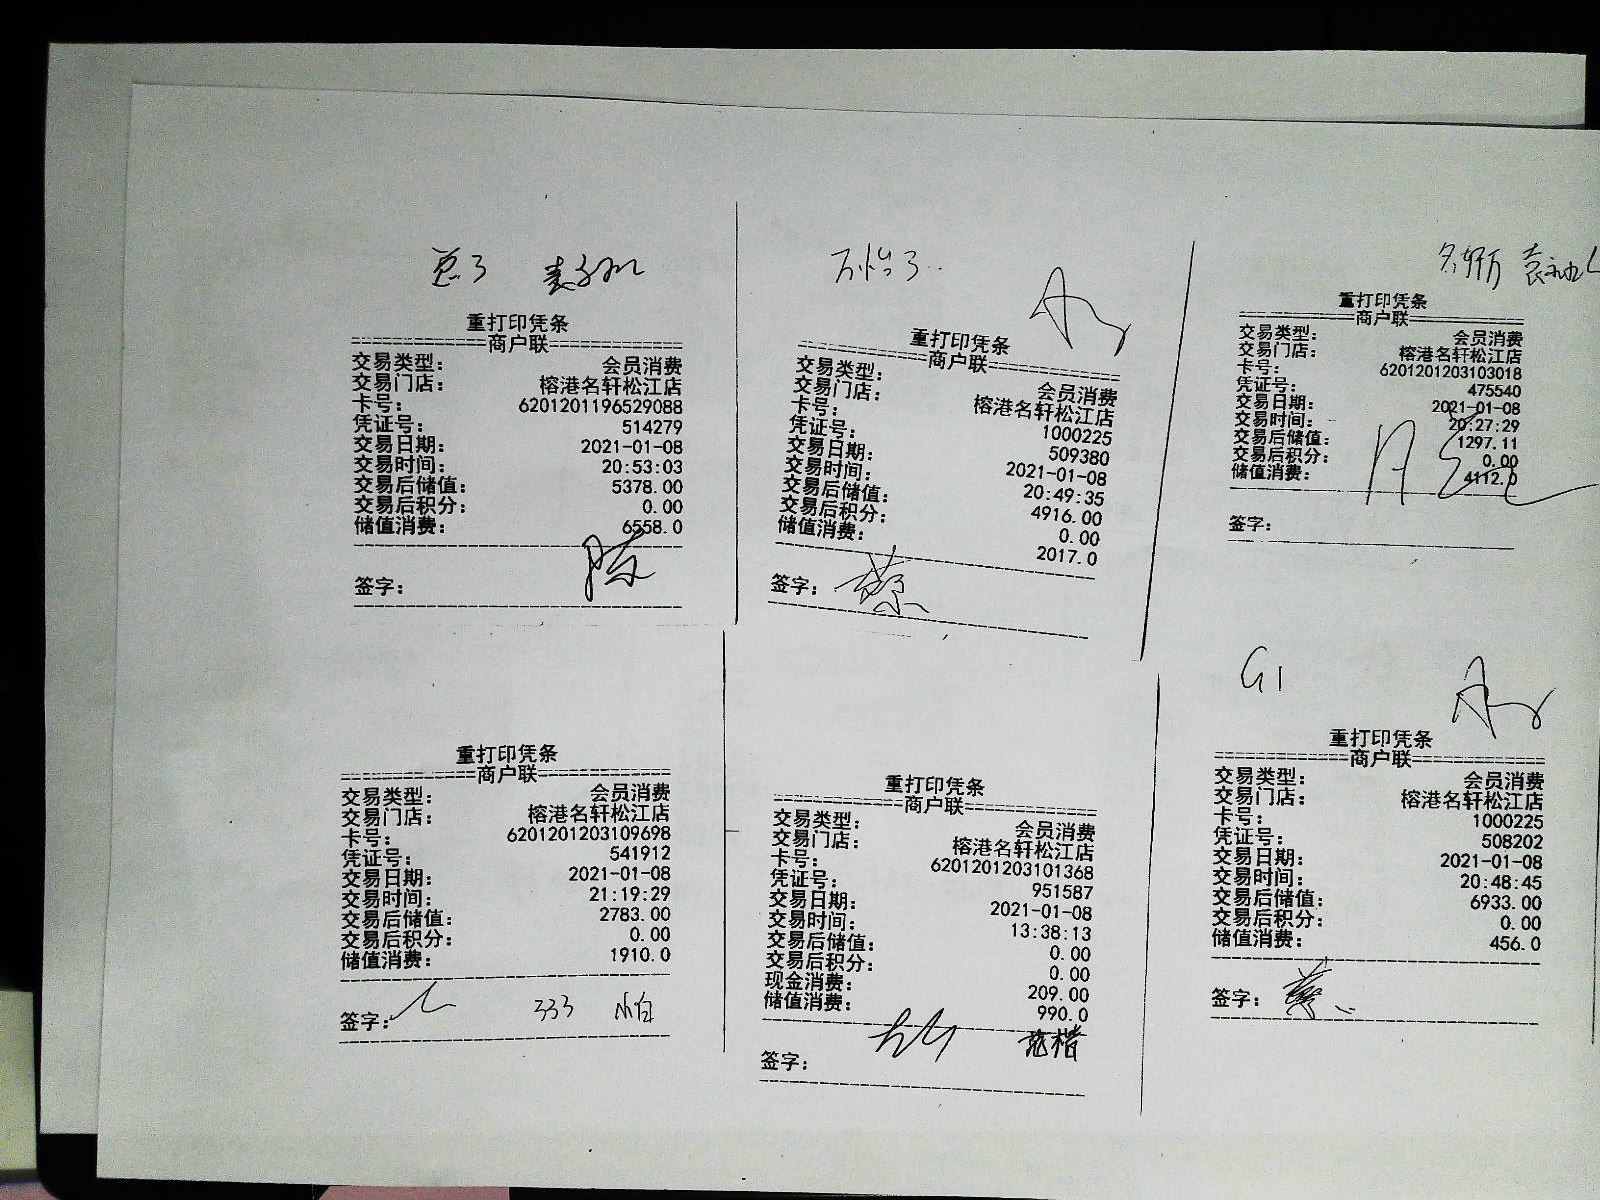 重打印凭条
商户联
交易类型: 会员消费
交易门店: 榕港名轩松江店
卡号: 6201201196529088
凭证号: 514279
交易日期: 2021-01-08
交易时间: 20:53:03
交易后储值: 5378.00
交易后积分: 0.00
储值消费: 6558.0
陈
签字:
重打印凭条
商户联
交易类型: 会员消费
交易门店: 榕港名轩松江店
卡号: 1000225
凭证号: 509380
交易日期: 2021-01-08
交易时间: 20:49:35
交易后储值: 4916.00
交易后积分: 0.00
储值消费: 2017.0
签字: 蔡
重打印凭条
商户联
交易类型: 会员消费
交易门店: 榕港名轩松江店
卡号: 6201201203103018
凭证号: 475540
交易日期: 2021-01-08
交易时间: 20:27:29
交易后储值: 1297.11
交易后积分: 0.00
储值消费: 4112.0
签字:
重打印凭条
商户联
交易类型: 会员消费
交易门店: 榕港名轩松江店
卡号: 6201201203109698
凭证号: 541912
交易日期: 2021-01-08
交易时间: 21:19:29
交易后储值: 2783.00
交易后积分: 0.00
储值消费: 1910.0
签字: 333 小白
重打印凭条
商户联
交易类型: 会员消费
交易门店: 榕港名轩松江店
卡号: 6201201203101368
凭证号: 951587
交易日期: 2021-01-08
交易时间: 13:38:13
交易后储值: 0.00
交易后积分: 0.00
现金消费: 209.00
储值消费: 990.0
签字:
G1
重打印凭条
商户联
交易类型: 会员消费
交易门店: 榕港名轩松江店
卡号: 1000225
凭证号: 508202
交易日期: 2021-01-08
交易时间: 20:48:45
交易后储值: 6933.00
交易后积分: 0.00
储值消费: 456.0
签字: